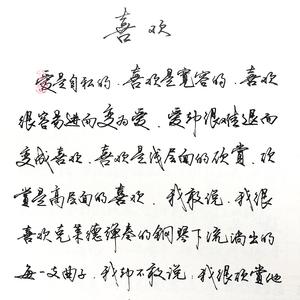 喜欢
爱是自私的.喜欢是宽容的.喜欢
很容易进而变为爱.爱却很难退而
变成喜欢.喜欢是浅层面的欣赏.欣
赏是高层面的喜欢.我敢说.我很
喜欢克莱德弹奏的钢琴下流淌出的
每一支曲子.我却不敢说:我很欣赏他